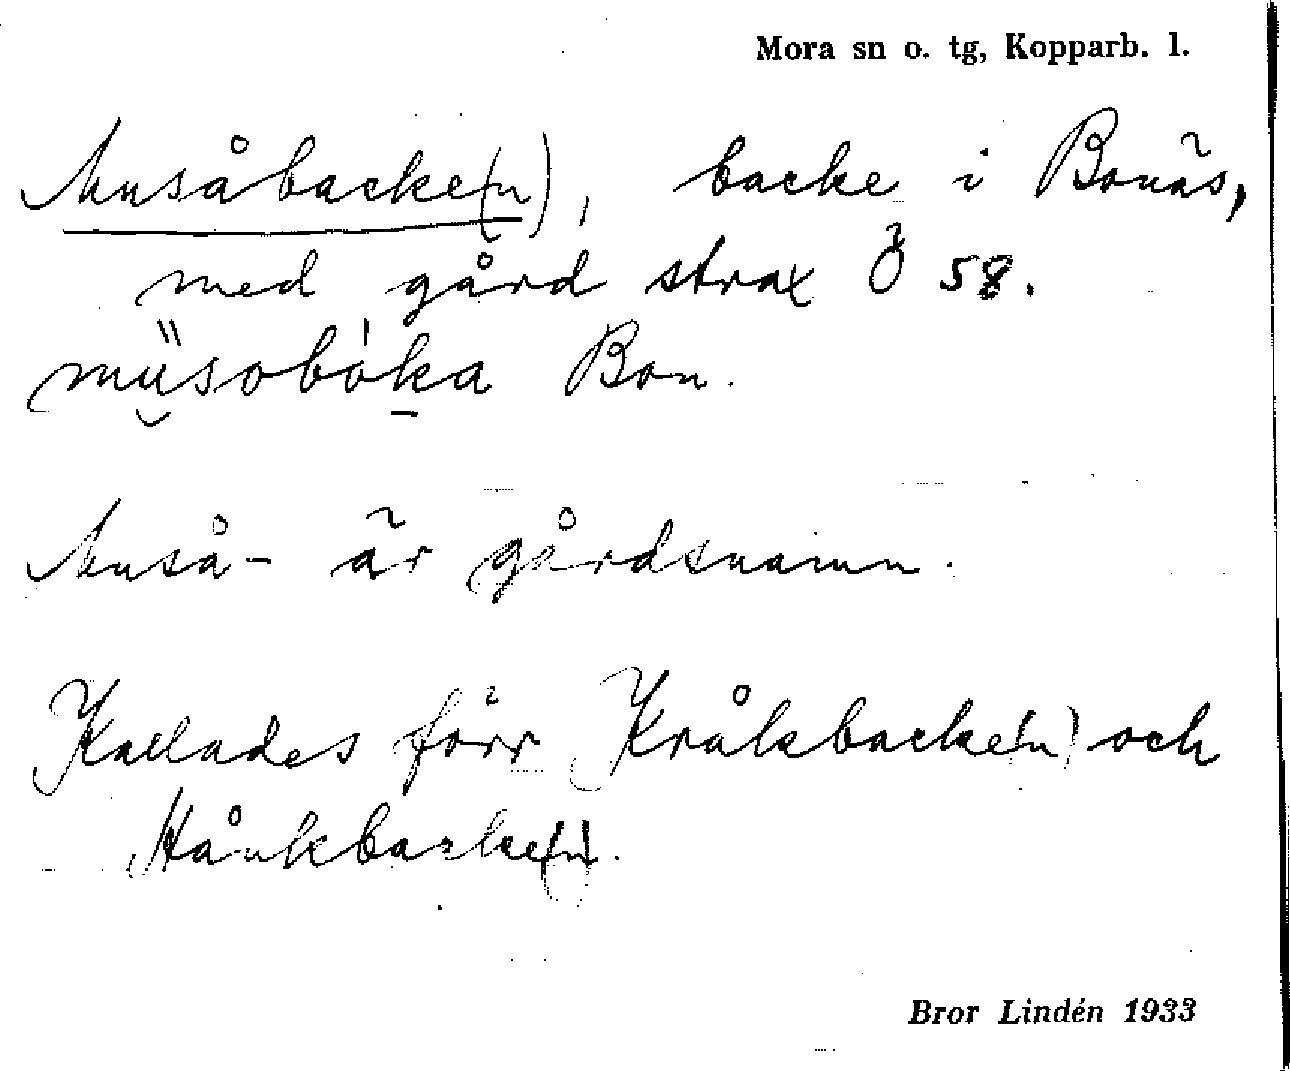 Mora sn o. tg, Kopparb. l.
Musåbacke(n), backe i Bonäs,
med gård strax Ö 58.
müsobóka Bon.
Muså- är gårdsnamn.
Kallades förr Kråkbacke(n) och
Hånkbacke(n).
Bror Lindén 1933